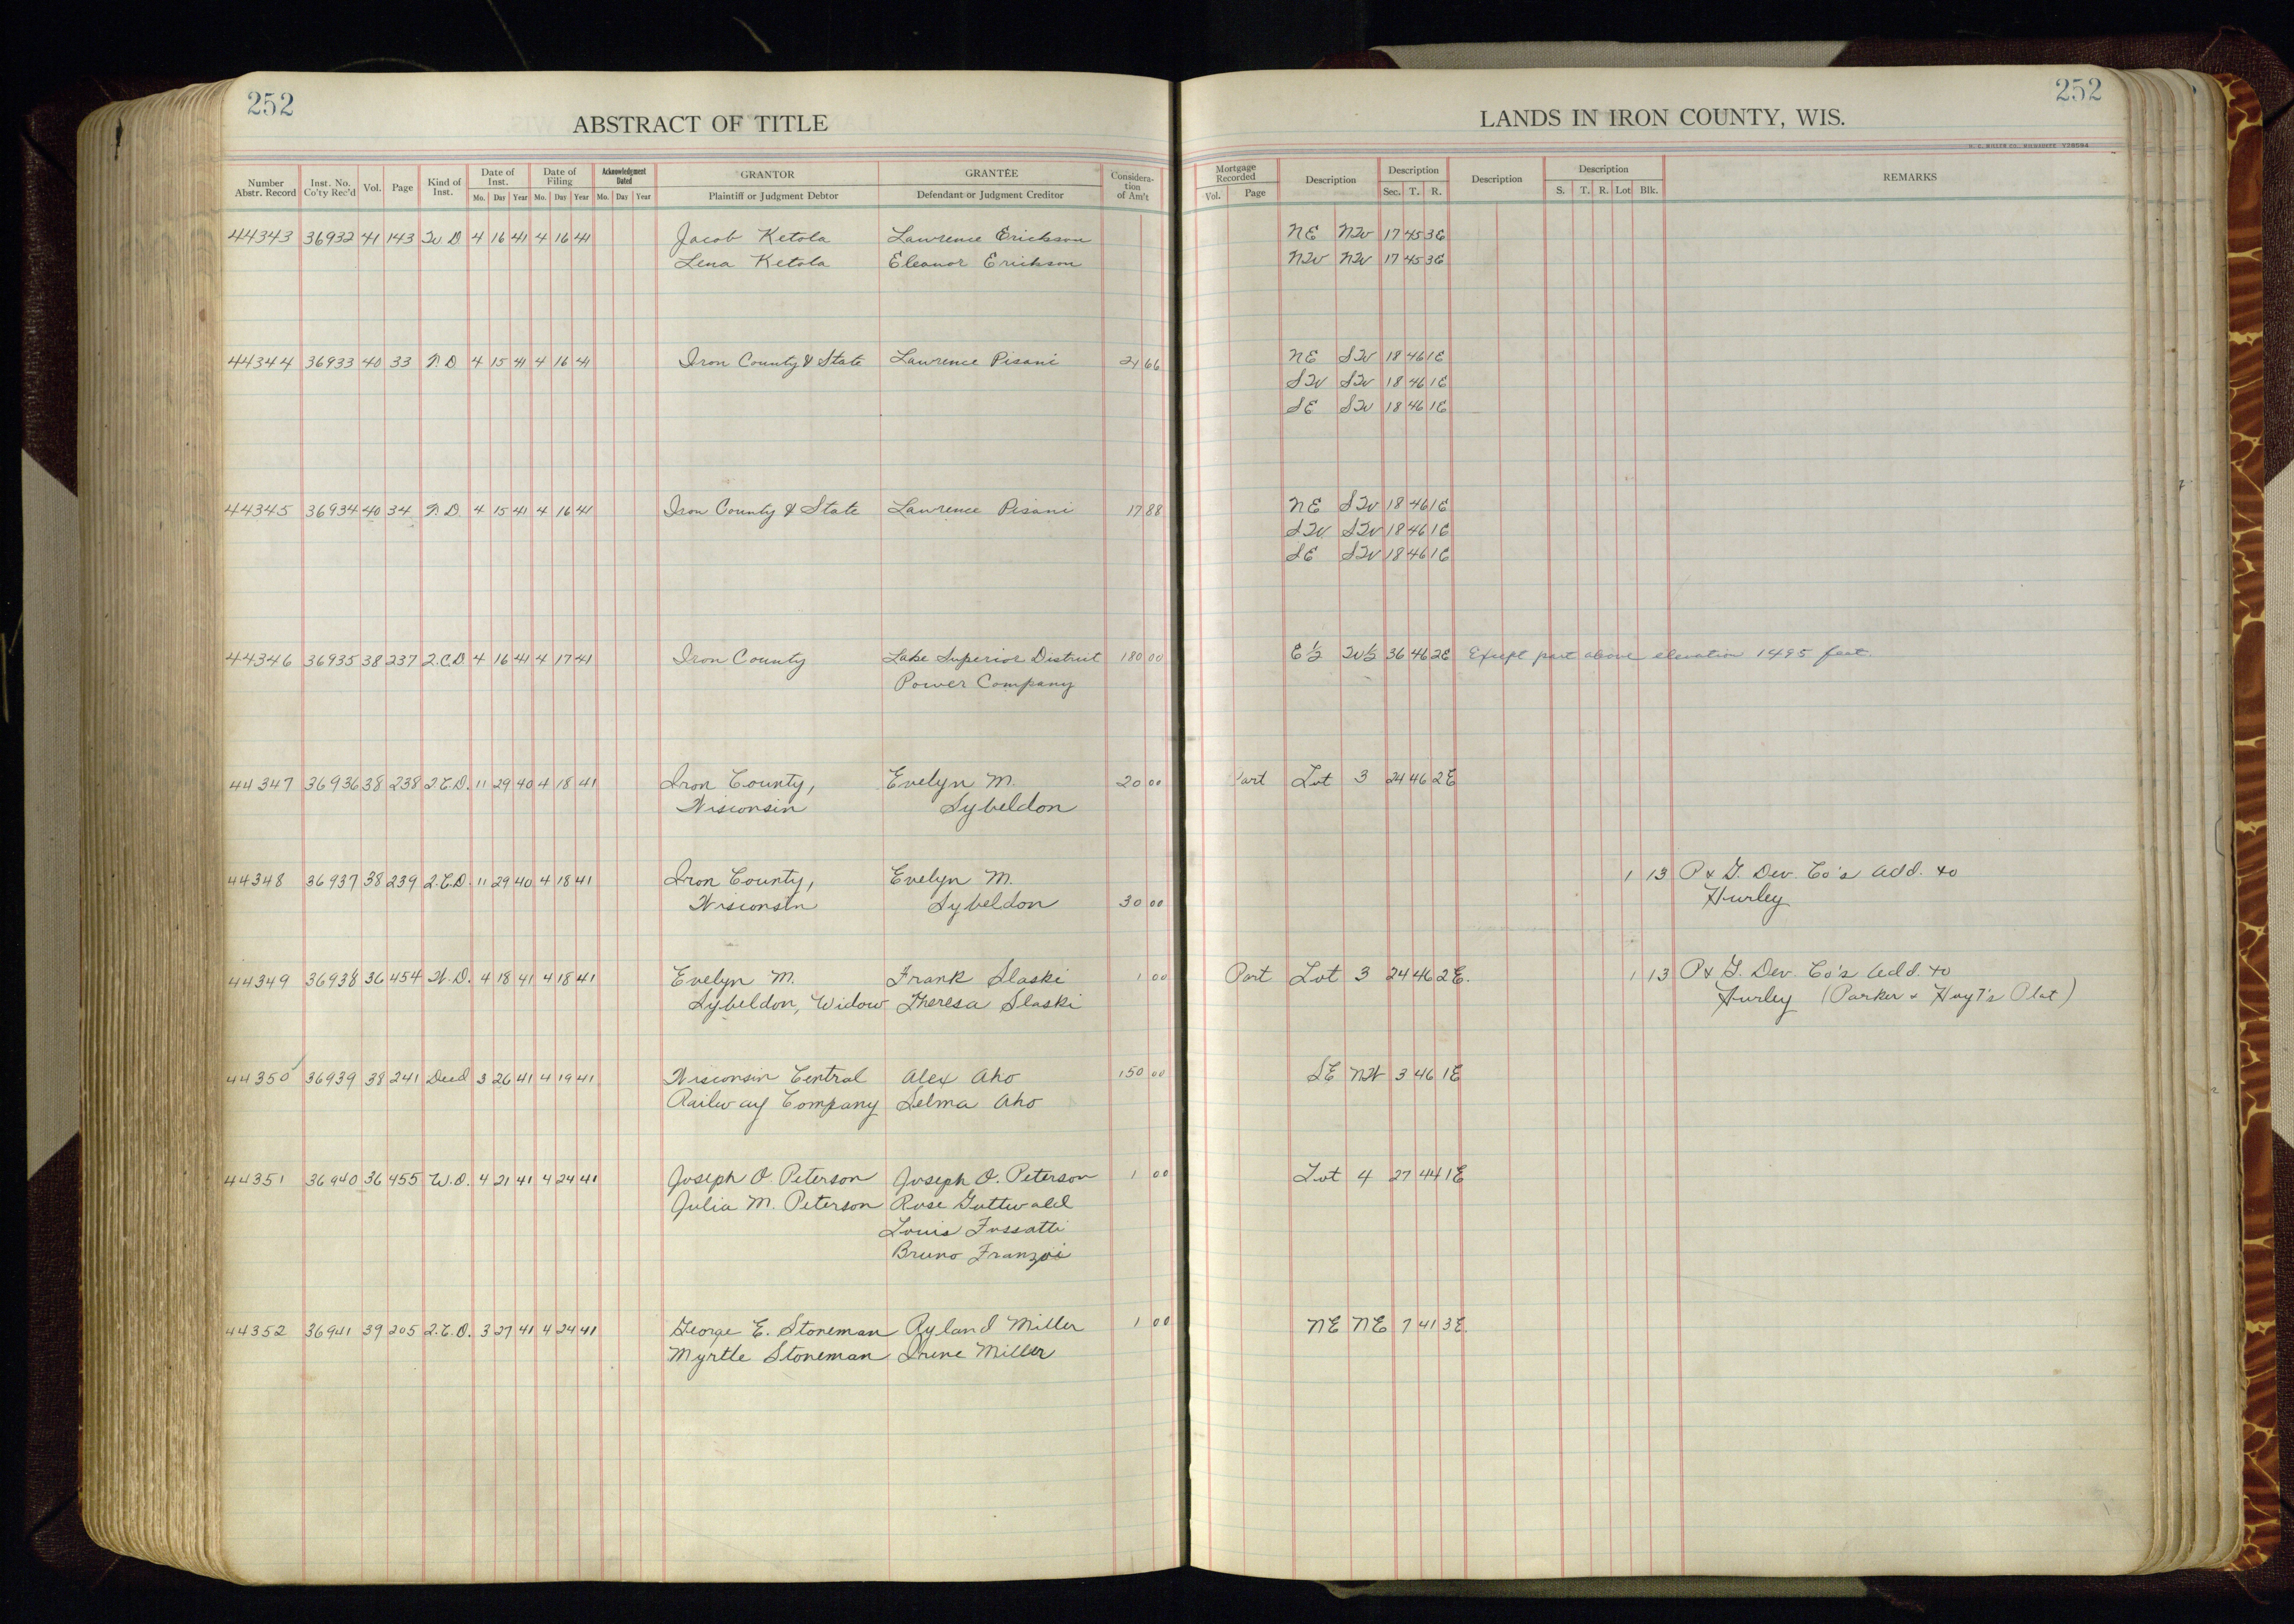 252
ABSTRACT OF TITLE
Number Abstr. Record | Inst. No. Co'ty Rec'd | Vol. | Page | Kind of Inst. | Date of Inst. Mo. Day Year | Date of Filing Mo. Day Year | Acknowledgment Dated Mo. Day Year | GRANTOR Plaintiff or Judgment Debtor | GRANTEE Defendant or Judgment Creditor | Consideration of Am't
44343 36932 41 143 W D 4 16 41 4 16 41 Jacob Ketola Lawrence Erickson
Lena Ketola Eleanor Erickson
44344 36933 40 33 T. D 4 15 41 4 16 41 Iron County & State Lawrence Pisani 21 66
44345 36934 40 34 T. D. 4 15 41 4 16 41 Iron County & State Lawrence Pisani 17 88
44346 36935 38 237 Q.C.D. 4 16 41 4 17 41 Iron County Lake Superior District 180 00
Power Company
44347 36936 38 238 Q.C.D. 11 29 40 4 18 41 Iron County, Evelyn M. 20 00
Wisconsin Sybeldon
44348 36937 38 239 Q.C.D. 11 29 40 4 18 41 Iron County, Evelyn M.
Wisconsin Sybeldon 30 00
44349 36938 36 454 W.D. 4 18 41 4 18 41 Evelyn M. Frank Slaski 1 00
Sybeldon, Widow Theresa Slaski
44350 36939 38 241 Deed 3 26 41 4 19 41 Wisconsin Central Alex Aho 150 00
Railway Company Selma Aho
44351 36940 36 455 W.D. 4 21 41 4 24 41 Joseph O. Peterson Joseph O. Peterson 1 00
Julia M. Peterson Rose Guttwald
Louis Fossatti
Bruno Franzoi
44352 36941 39 205 Q.C.D. 3 27 41 4 24 41 George E. Stoneman Ryland Miller 1 00
Myrtle Stoneman Irene Miller
252
LANDS IN IRON COUNTY, WIS.
Mortgage Recorded Vol. Page | Description | Description Sec. T. R. | Description | Description S. T. R. Lot Blk. | REMARKS
NE NW 17 45 3E
NW NW 17 45 3E
NE SW 18 46 1E
SW SW 18 46 1E
SE SW 18 46 1E
NE SW 18 46 1E
SW SW 18 46 1E
SE SW 18 46 1E
E½ W½ 36 46 2E Except part above elevation 1495 feet.
Part Lot 3 24 46 2E
1 13 P & G. Dev. Co's Add. to
Hurley
Part Lot 3 24 46 2E. 1 13 P & G. Dev. Co's Add. to
Hurley (Parker & Hoyt's Plat)
SE NW 3 46 1E
Lot 4 27 44 1E
NE NE 7 41 3E.